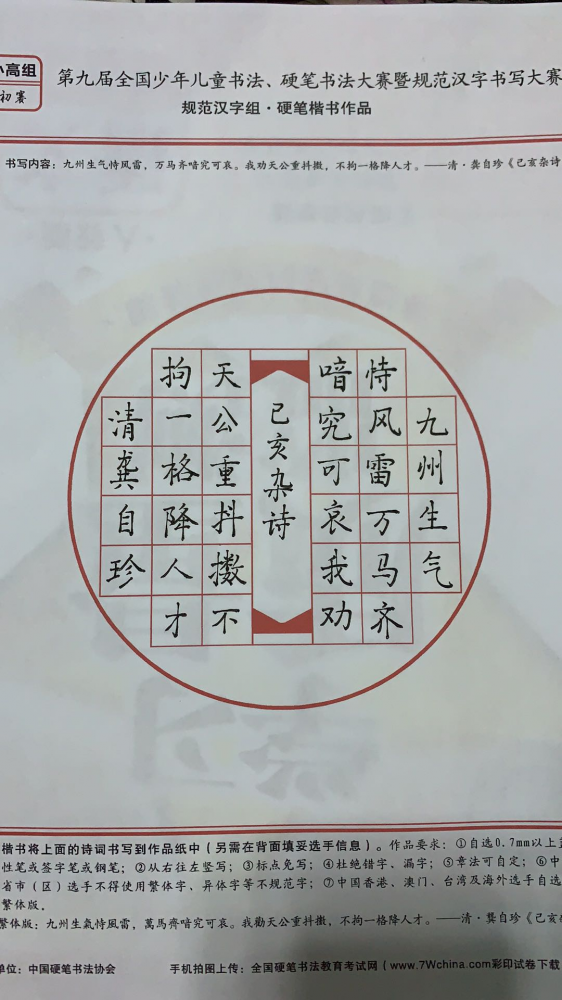 小高组
初赛
第九届全国少年儿童书法、硬笔书法大赛暨规范汉字书写大赛
规范汉字组·硬笔楷书作品
书写内容：九州生气恃风雷，万马齐喑究可哀。我劝天公重抖擞，不拘一格降人才。——清·龚自珍《己亥杂诗
九州生气
恃风雷万马齐
喑究可哀我劝
己亥杂诗
天公重抖擞不
拘一格降人才
清龚自珍
楷书将上面的诗词书写到作品纸中（另需在背面填妥选手信息）。作品要求：①自选0.7mm以上
性笔或签字笔或钢笔；②从右往左竖写；③标点免写；④杜绝错字、漏字；⑤章法可自定；⑥中
省市（区）选手不得使用繁体字、异体字等不规范字；⑦中国香港、澳门、台湾及海外选手自选
繁体版。
繁体版：九州生氣恃風雷，萬馬齊喑究可哀。我勸天公重抖擻，不拘一格降人才。——清·龔自珍《己亥
单位：中国硬笔书法协会
手机拍图上传：全国硬笔书法教育考试网（www.7Wchina.com彩印试卷下载